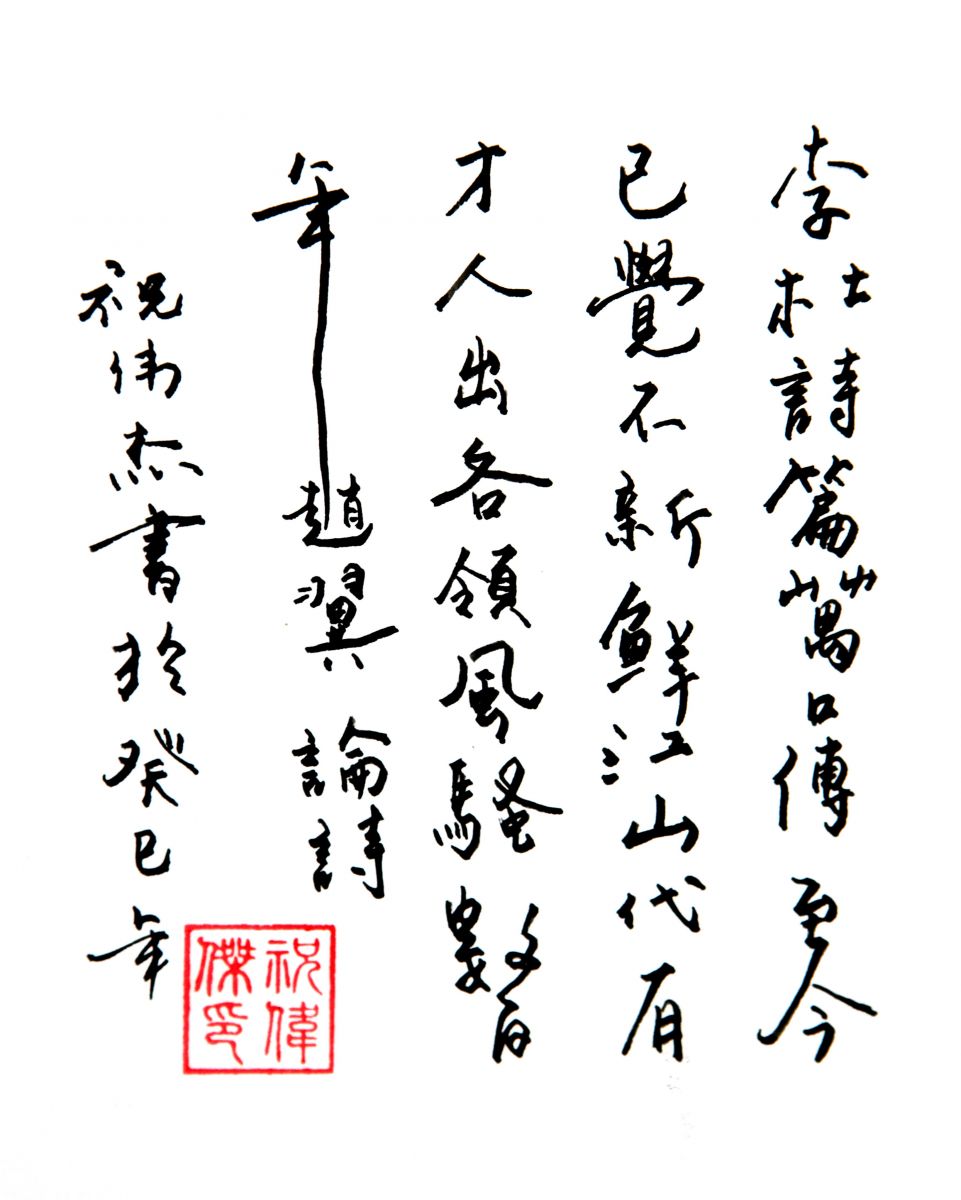 李杜詩篇萬口傳至今
已覺不新鮮江山代有
才人出各領風騷數百
年 趙翼論詩
祝伟杰書於癸巳年
祝偉傑印